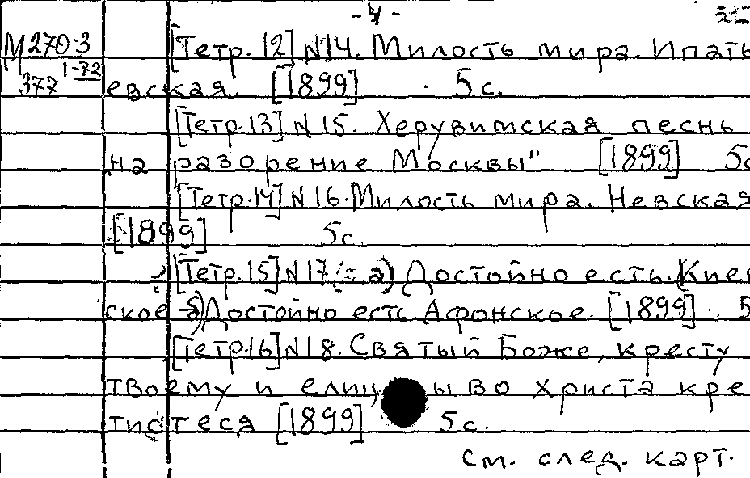 -4-
М270-3 [Тетр. 12] №14. Милость мира. Ипать
377 1-72 евская. [1899] 5 с.
[Тетр. 13] №15. Херувимская песнь
на разорение Москвы" [1899] 5с
[Тетр. 14] №16. Милость мира. Невская
[1899] 5с.
[Тетр. 15] №17 а) Достойно есть. Кие
ское б) Достойно есть Афонское. [1899] 5
[Тетр. 16] №18. Святый Боже, кресту
твоему и елицы во Христа кре
тистеся [1899] 5с.
см. след. карт.